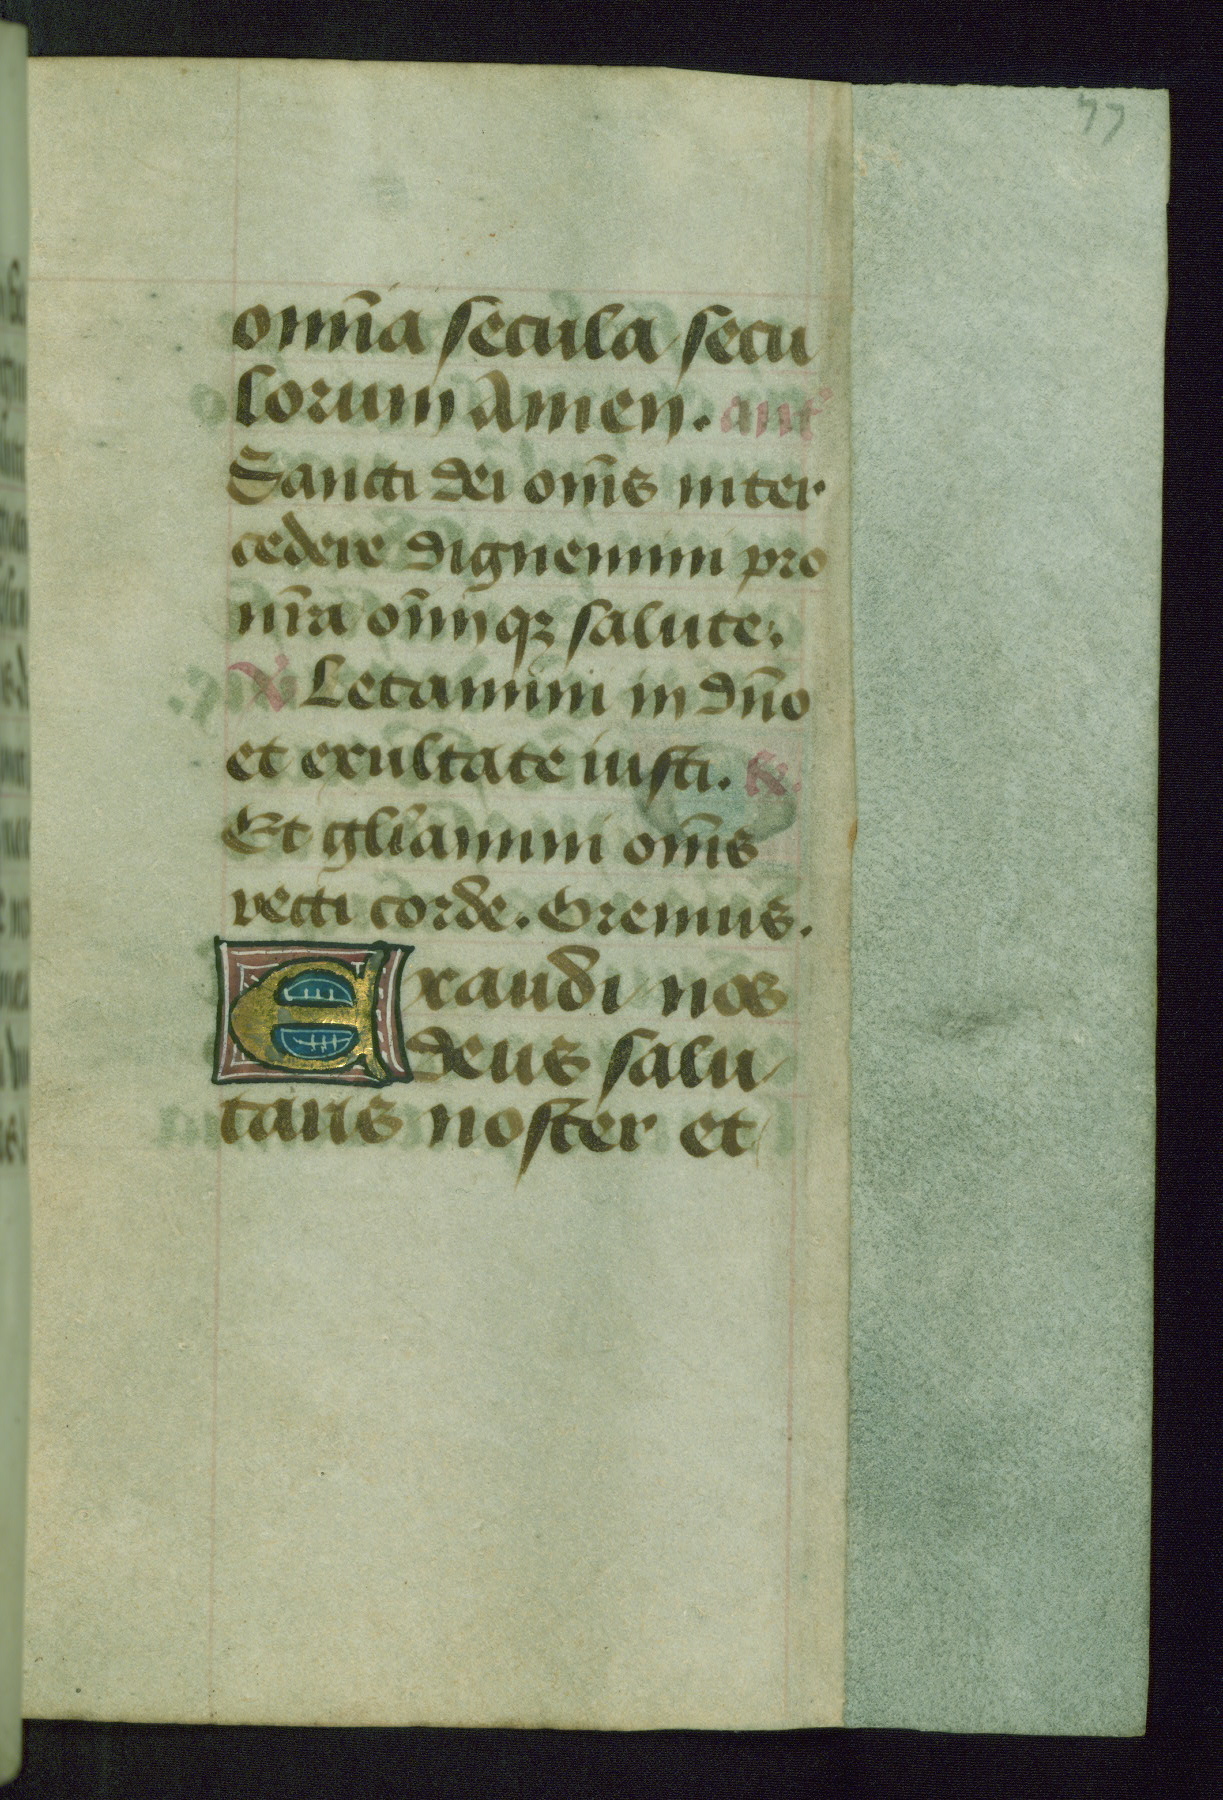 77
omnīa secula secu
lorum Amen. ant
Sancti dei om̄s inter
cedere dignemini pro
nr̄a om̄inqꝫ salute.
V Letamini in dn̄o
et exultate iusti. R.
Et glīamini om̄s
recti corde. Oremus.
Exaudi nos
deus salu
taris noster et